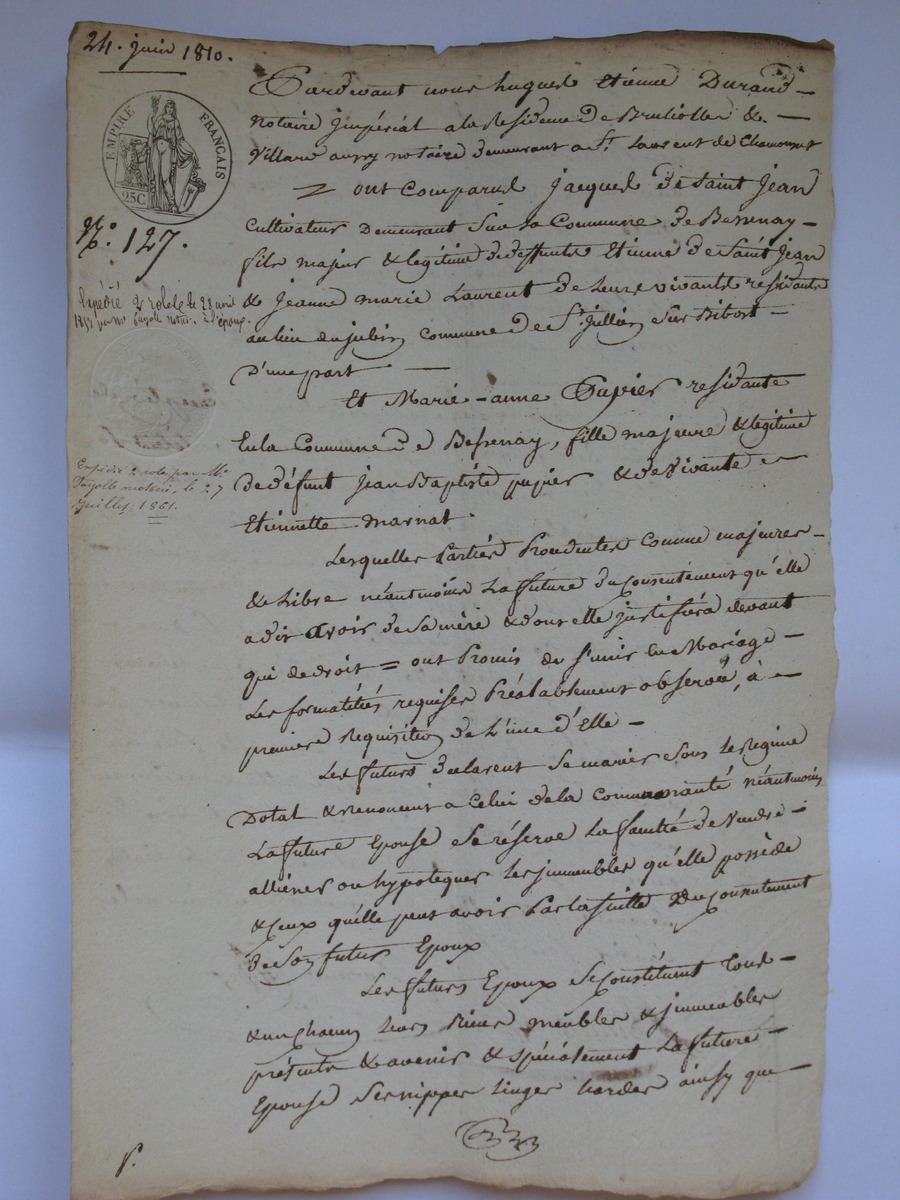 24. juin 1810.
EMPIRE FRANÇAIS
25C
N.o 127.
Expédié 2 roles le 28 avril
notre. à l'époux.
Expédié 2 role par Me
notaire, le 27
juillet 1861.
Pardevant nous hugues Etienne Durand
notaire jmpérial a la Residence de Bruliolles &
Villard aussy notaire demeurant a St. Laurent de Chamousset
ont comparus jacques De Saint jean
Cultivateur Demeurant Sur la Commune de Bessenay
fils majeur & legitime de deffunts Etienne de Saint jean
& jeanne marie Laurent de leurs vivants residants
au lieu du jubin commune de St. jullien Sur Bibost
D'une part
Et Marie-anne Pupier residante
En la Commune De Bessenay, fille majeure & legitime
De défunt jean Baptiste pupier & de vivante
Etiennette marnat.
Lesquelles Parties Procedentes Comme majeures
& Libre néantmoins La future du consentement qu'elle
a dit avoir de sa mère & dont elle justifiéra devant
qui de droit = ont Promis de s'unir En Mariage
Les formalités requises Préalablement observées, à
premiere requisition de L'une d'Elle
Les futurs declarent se marier Sous le Regime
Dotal & renoncent a Celui de la communauté néantmoins
La future Epouse Se réserve La faculté de Vendre
alliéner ou hypotequer Les jmmeubles qu'elle possede
& Ceux qu'elle peut avoir Par la suitte Du Consentement
de Son futur Epoux
Les futurs Epoux Se Constituent Tous
& un Chacun Leurs Biens meubles & jmmeubles
présents & avenir & spécialement La future
Epouse Ses nippes Linges hardes ainsy que